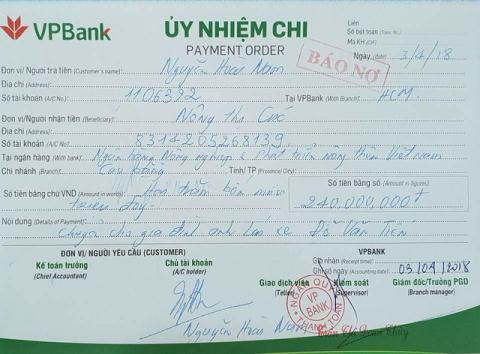 VPBank
ỦY NHIỆM CHI
PAYMENT ORDER
Liên
Số bút toán (Trans. No.)
Mã KH (CIF)
Ngày (date) 3/4/18
BÁO NỢ
Đơn vị/Người trả tiền (Customer's name): Nguyễn Hoài Nam
Địa chỉ (Address):
Số tài khoản (A/C No.): 1106392 Tại VPBank (With Branch): HCM
Đơn vị/Người nhận tiền (Beneficiary): Nông Thị Cúc
Địa chỉ (Address):
Số tài khoản (A/C No): 8314205268139
Tại ngân hàng (With bank): Ngân hàng Nông nghiệp & Phát triển nông thôn Việt Nam
Chi nhánh (Branch): Cao Bằng Tỉnh/ TP (Province/City):
Số tiền bằng chữ VND (Amount in words): Hai trăm bốn mươi triệu đồng
Số tiền bằng số (Amount in figures)
240.000.000đ
Nội dung (Details of Payment): Chuyển cho gia đình anh Lái xe Đỗ Văn Tiến
ĐƠN VỊ/ NGƯỜI YÊU CẦU (CUSTOMER)
VPBANK
Kế toán trưởng
(Chief Accountant)
Chủ tài khoản
(A/C holder)
Ghi nhận (Receipt time):
Ghi sổ ngày (Accounting date): 03/04/2018
Giao dịch viên
(Teller)
Kiểm soát
(Supervisor)
Giám đốc/Trưởng PGD
(Branch manager)
NGÂN QUỸ
VP
BANK
THANH TOÁN
Nguyễn Hoài Nam